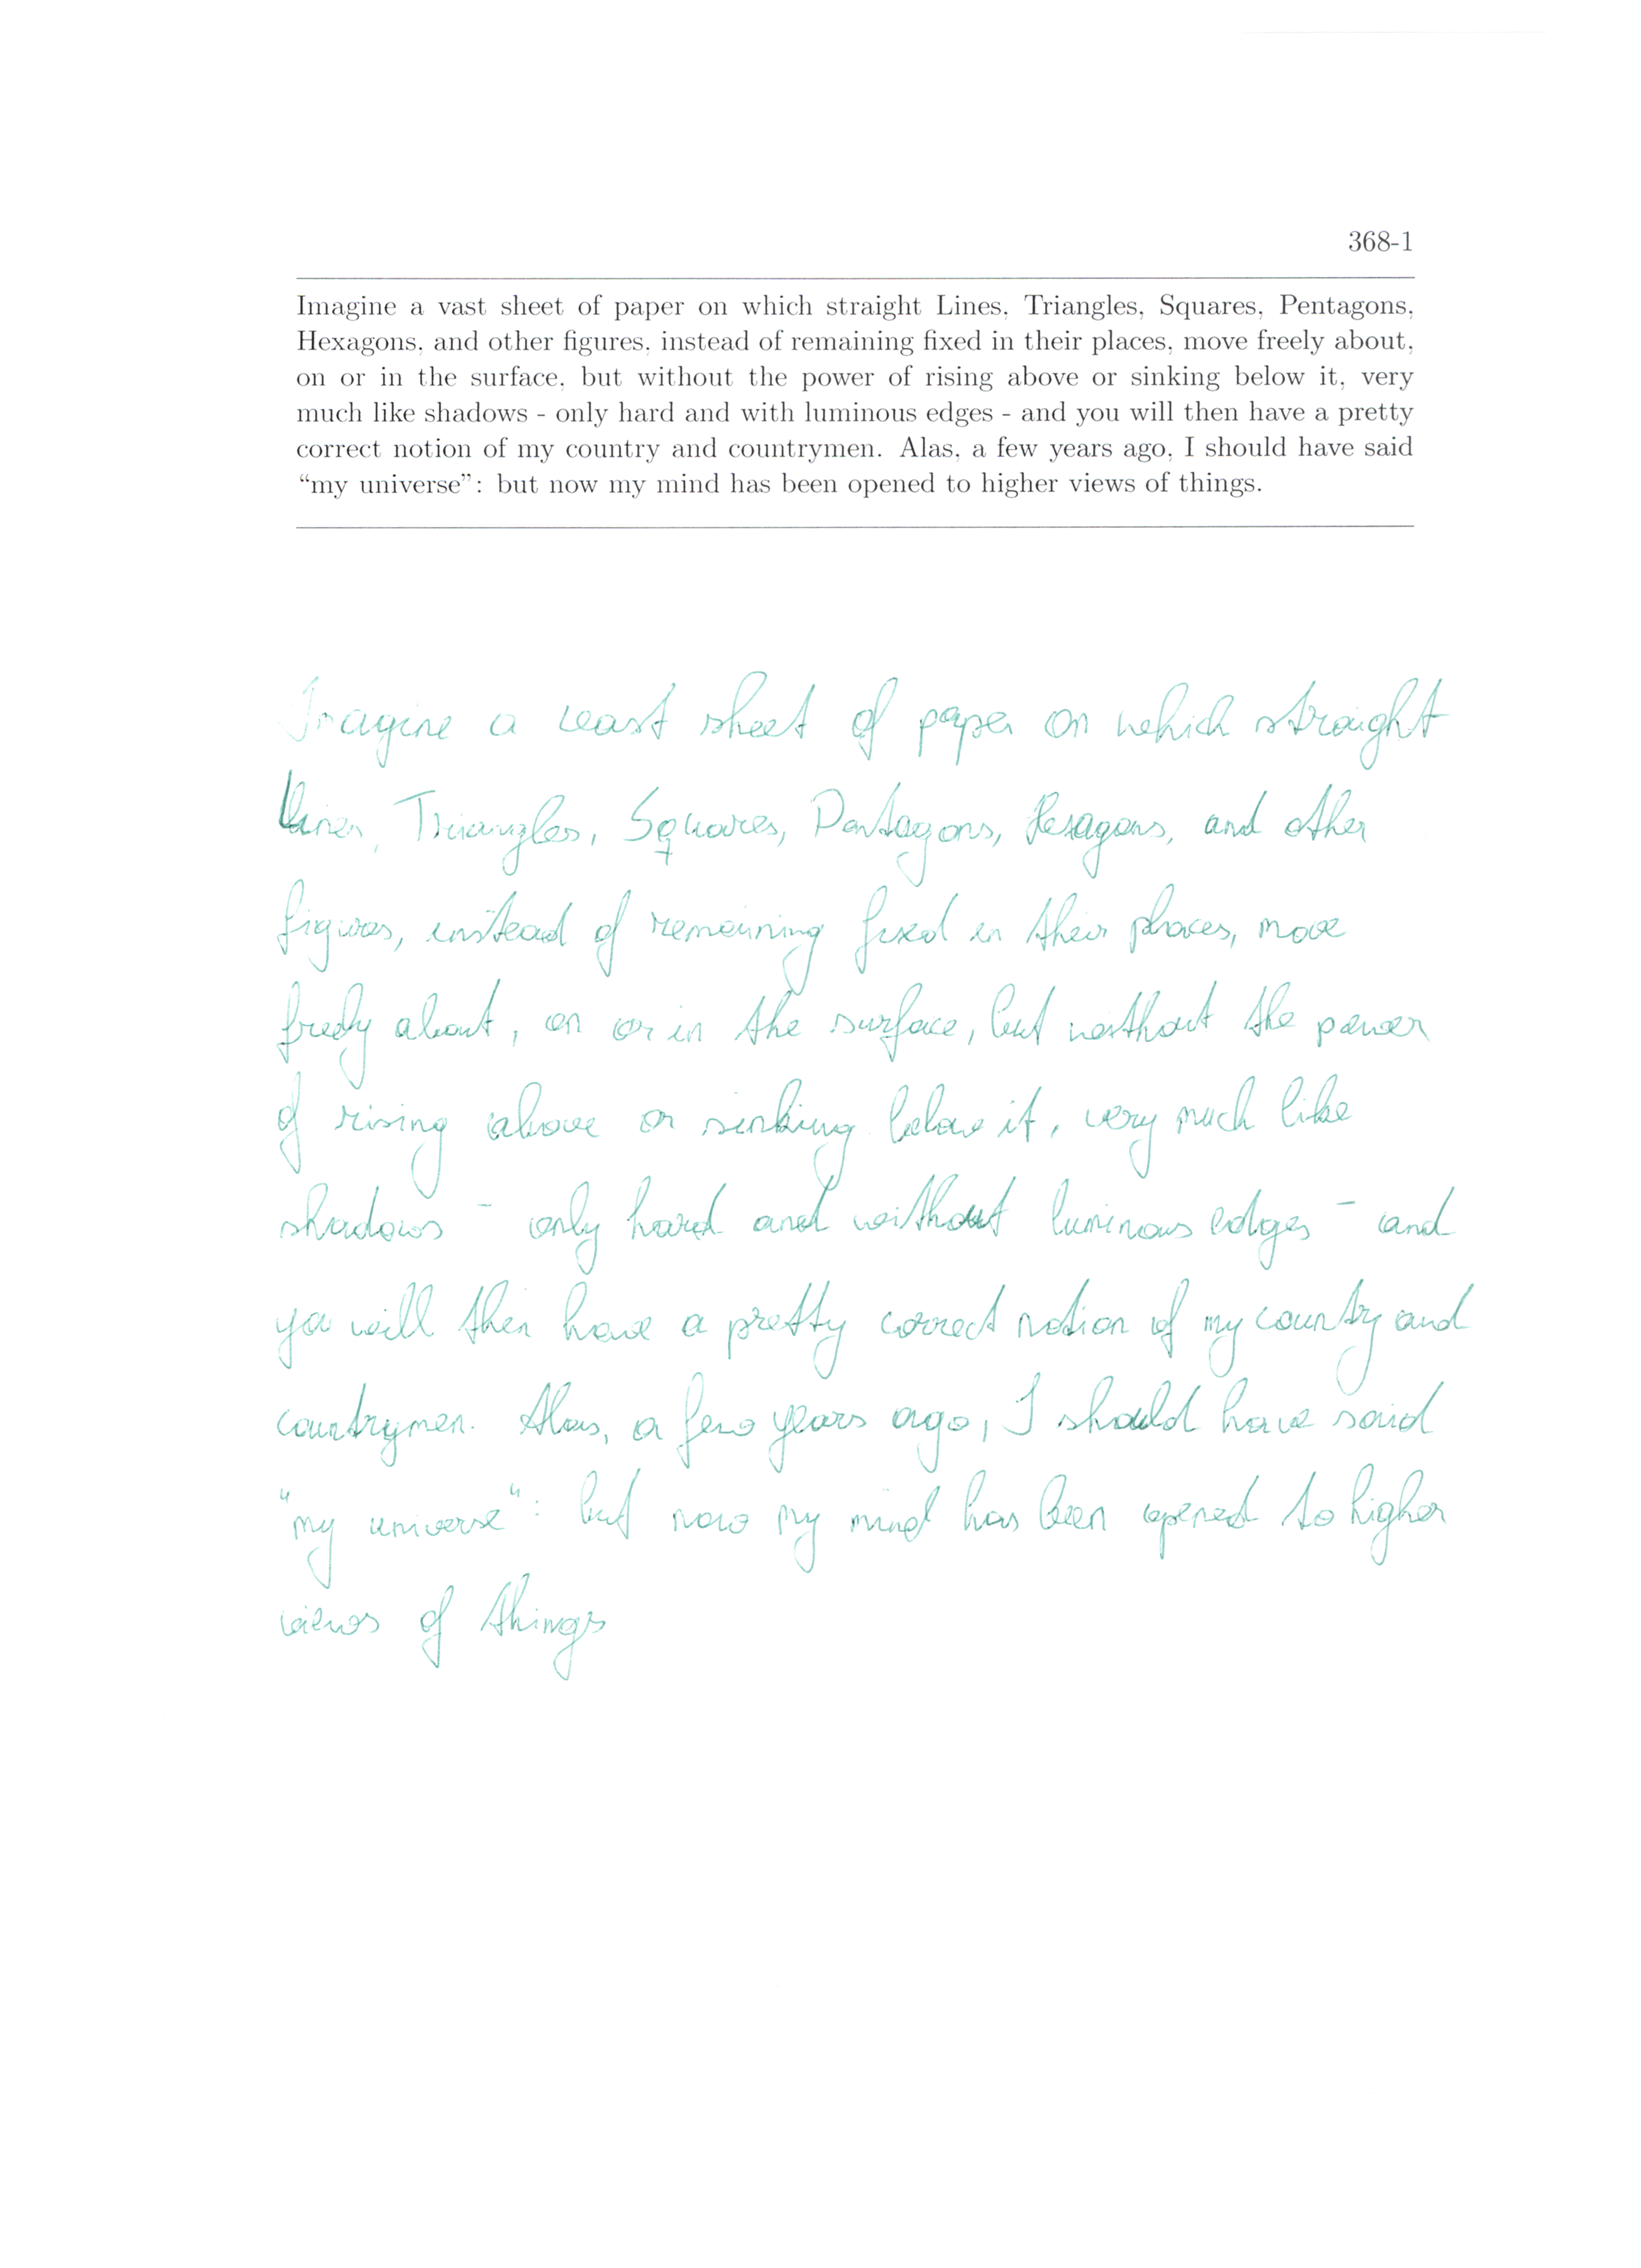 368-1
Imagine a vast sheet of paper on which straight Lines, Triangles, Squares, Pentagons,
Hexagons, and other figures, instead of remaining fixed in their places, move freely about,
on or in the surface, but without the power of rising above or sinking below it, very
much like shadows - only hard and with luminous edges - and you will then have a pretty
correct notion of my country and countrymen. Alas, a few years ago, I should have said
“my universe”: but now my mind has been opened to higher views of things.
Imagine a veast sheet of paper on which straight
Lines, Triangles, Squares, Pentagons, Hexagons, and other
figures, instead of remaining fixed in their places, move
freely about, on or in the surface, but without the power
of rising above or sinking below it, very much like
shadows - only hard and without luminous edges - and
you will then have a pretty correct notion of my country and
countrymen. Alas, a few years ago, I should have said
"my universe": but now my mind has been opened to higher
views of things